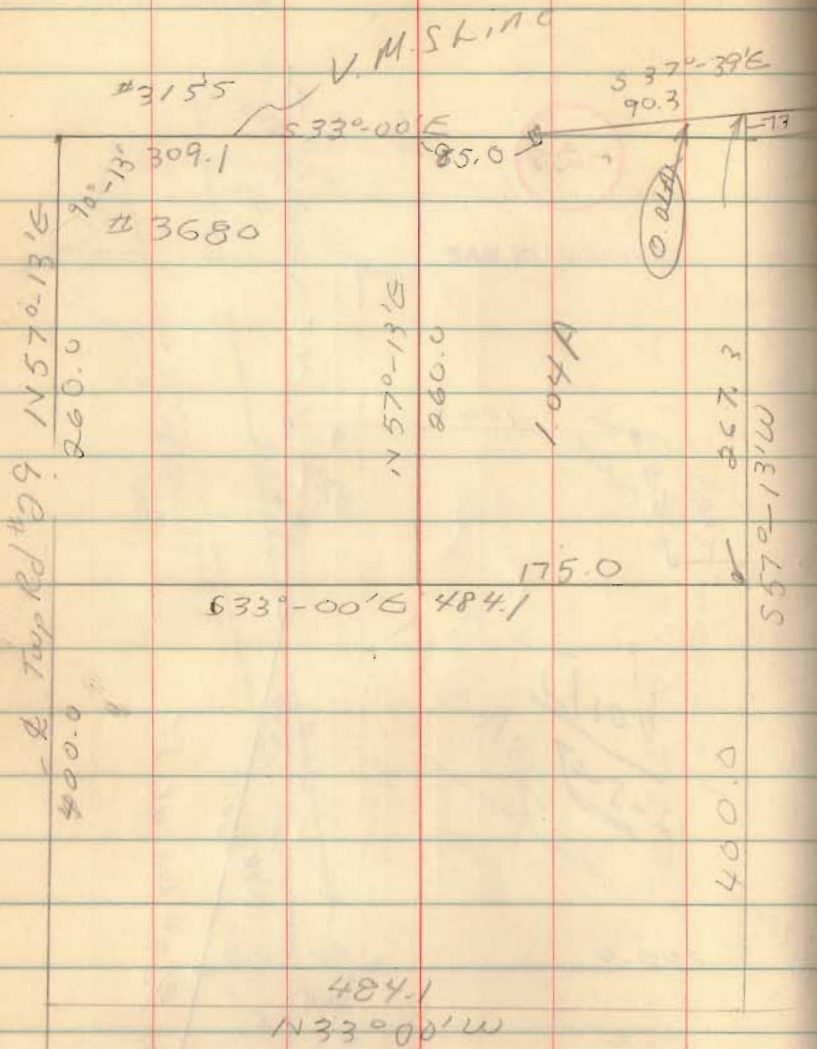 V.M.S Line
#3155
S 37°-39'E
90.3
S33°-00'E
309.1
85.0
7.3
90°-13'
#3680
N57°-13'E
260.0
N57°-13'E
260.0
1.04A
267.3
S57°-13'W
Twp Rd #29
175.0
S33°-00'E 484.1
400.0
400.0
484.1
N33°00'W